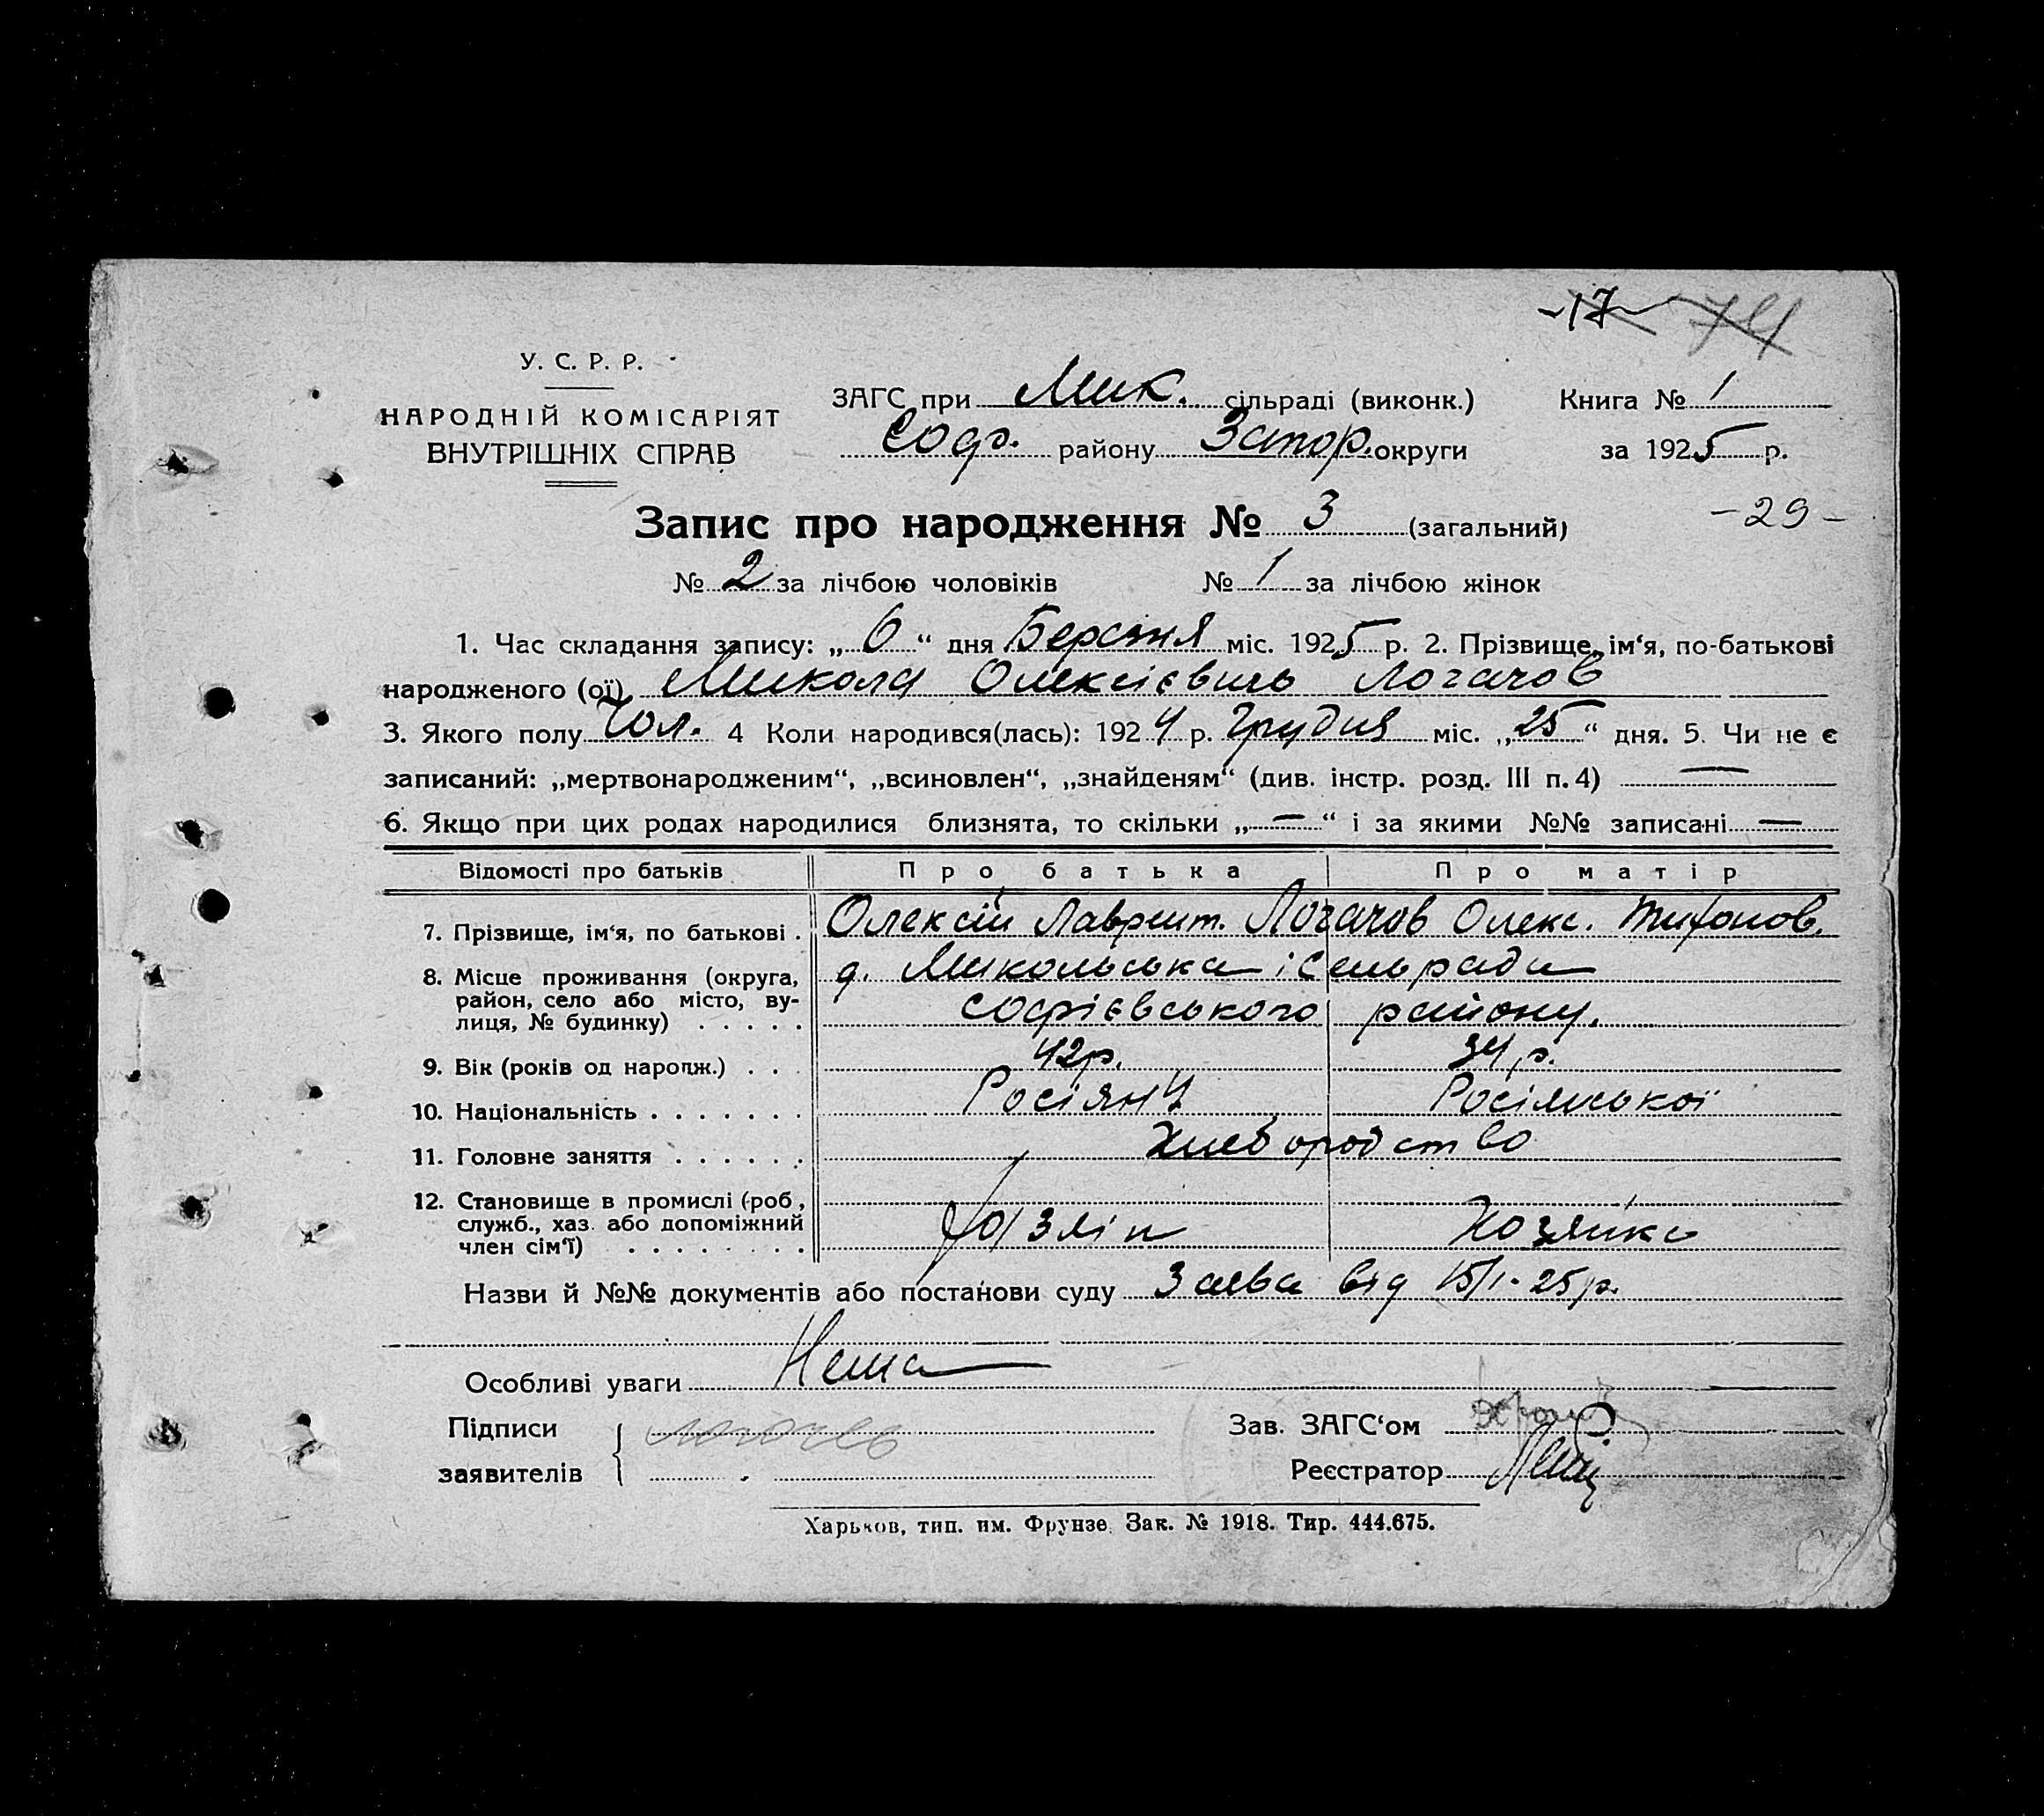 -17- 74
У. С. Р. Р.
НАРОДНІЙ КОМІСАРІЯТ
ВНУТРІШНІХ СПРАВ
ЗАГС при Мик. сільраді (виконк.)
Соф. району Запор. округи
Книга № 1
за 1925 р.
Запис про народження № 3 (загальний)
-29-
№ 2 за лічбою чоловіків № 1 за лічбою жінок
1. Час складання запису: „6“ дня Березня міс. 1925 р. 2. Прізвище, ім‘я, по-батькові
народженого (ої) Микола Олексієвичь Логачов
3. Якого полу Чол. 4 Коли народився(лась): 1924 р. Грудня міс. „25“ дня. 5. Чи не є
записаний: „мертвонародженим“, „всиновлен“, „знайденям“ (див. інстр. розд. III п. 4) —
6. Якщо при цих родах народилися близнята, то скільки „—“ і за якими №№ записані —
Відомості про батьків Про батька Про матір
7. Прізвище, ім‘я, по батькові . Олексій Лаврент. Логачов Олекс. Тифонов.
8. Місце проживання (округа, д. Микольська і Сельрада
район, село або місто, ву- софієвського району.
лиця, № будинку) . . . . .
9. Вік (років од народж.) . . . 42р. 34 р.
10. Національність . . . . . . . Росіян Росімської
11. Головне заняття . . . . . . Хлебородство
12. Становище в промислі (роб,
служб., хаз. або допоміжний Хозяйка
член сім‘ї) . . . . . . . .
Назви й №№ документів або постанови суду Заява від 15/1-25р.
Особливі уваги Нема
Підписи
заявителів
Зав. ЗАГС‘ом
Реєстратор
Харьков, тип. им. Фрунзе. Зак. № 1918. Тир. 444.675.